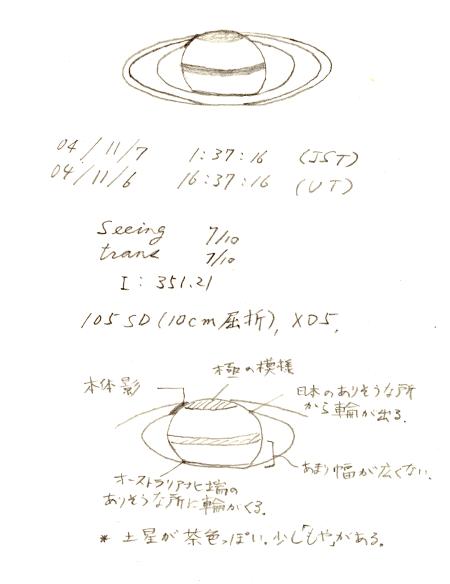 04/11/7 1:37:16 (JST)
04/11/6 16:37:16 (UT)
Seeing 7/10
trans 7/10
I: 351.21
105SD(10cm屈折), XO5,
極の模様
本体影
日本のありそうな所
から輪が出る.
あまり幅が広くない.
オーストラリア北端の
ありそうな所に輪がくる.
* 土星が茶色っぽい.少し「もや」がある.